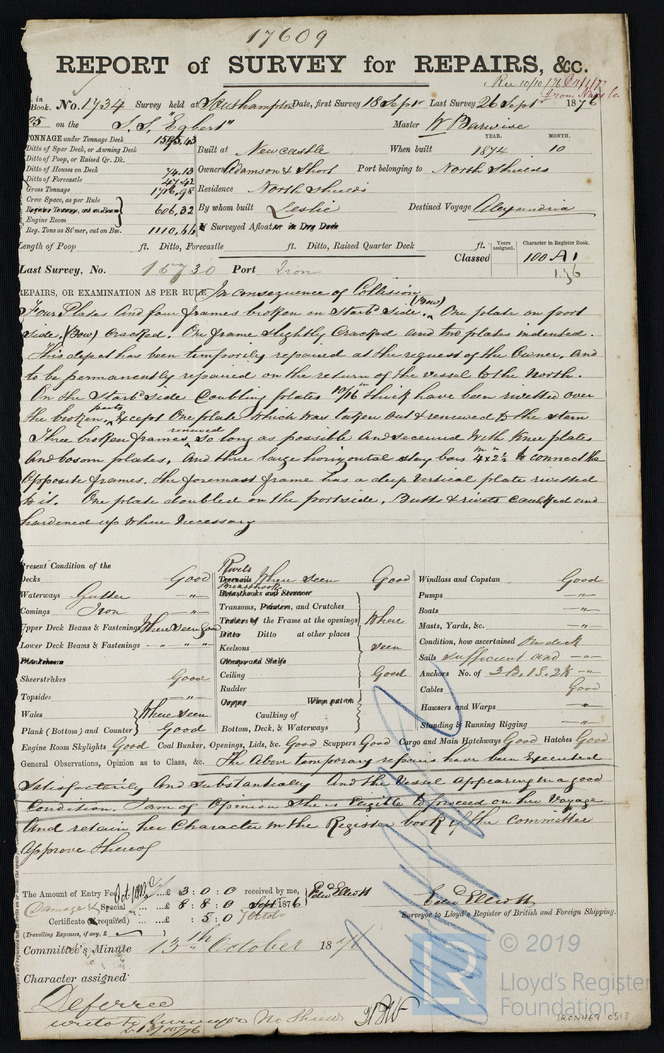 17609
REPORT of SURVEY for REPAIRS, &c.
Rec 10/10/76
in Book. No. 1734 Survey held at Southampton Date, first Survey 18 Sept Last Survey 26 Sept 1876
25 on the S.S. "Egbert" Master W Barwise
TONNAGE under Tonnage Deck 1595.43
Ditto of Spar Deck, or Awning Deck
Ditto of Poop, or Raised Qr. Dk.
Ditto of Houses on Deck 74.13
Ditto of Forecastle 47.42
Gross Tonnage 1716.98
Crew Space, as per Rule
Register Tonnage, cut on Beam
Engine Room 606.32
Reg. Tons as St'mer, cut on Bm. 1110.66
YEAR. MONTH.
Built at Newcastle When built 1874 10
Owners Adamson & Short Port belonging to North Shields
Residence North Shields
By whom built Leslie Destined Voyage Alexandria
Surveyed Afloat or in Dry Dock
Length of Poop ft. Ditto, Forecastle ft. Ditto, Raised Quarter Deck ft.
Years assigned. Character in Register Book.
Classed 100 A1
Last Survey, No. 15730 Port Iron
1,76
REPAIRS, OR EXAMINATION AS PER RULE, In consequence of Collision
Four Plates And four frames broken on Starbd Side, (Bow) One plate on port
Side, (Bow) Cracked. One frame Slightly Cracked and two plates indented.
This defect has been temporily repaired at the request of the Owner, And
to be permanently repaired on the return of the vessel to the North.
On the Starbd Side Doubling plates 10/16 in thick have been rivetted over
the broken parts Except One plate which was taken out & renewed to the stem
Three broken frames renewed so long as possible And secured With Knee plates
And bosom plates, And three large horizontal stay bars 4 x 2½ to connect the
Opposite frames. the foremast frame has a deep vertical plate rivetted
to it. One plate doubled on the port side, Butts & rivets caulked and
hardened up Where Necessary
Present Condition of the
Decks Good
Waterways Gutter -"-
Comings Iron -"-
Upper Deck Beams & Fastenings Where Seen Good
Lower Deck Beams & Fastenings -"- -"-
Plankshears
Sheerstrakes Good
Topsides -"-
Wales Where Seen
Plank (Bottom) and Counter Good
Rivets
Treenails Where Seen Good
Breasthooks
Breasthooks and Stemson
Transoms, Pointers, and Crutches
Timbers of the Frame at the openings Where
Ditto Ditto at other places
Keelsons Seen
Clamps and Shelfs
Ceiling Good
Rudder
Copper When put on
Caulking of
Bottom, Deck, & Waterways
Windlass and Capstan Good
Pumps -"-
Boats -"-
Masts, Yards, &c. -"-
Condition, how ascertained On deck
Sails Sufficient and -"-
Anchors No. of 3B, 1S, 2K -"-
Cables Good
Hawsers and Warps -"-
Standing & Running Rigging -"-
Engine Room Skylights Good Coal Bunker, Openings, Lids, &c. Good Scuppers Good Cargo and Main Hatchways Good Hatches Good
General Observations, Opinion as to Class, &c. The Above temporary repairs have been Executed
Satisfactorily And Substantially And the Vessel Appearing in a good
Condition. I am of Opinion She is Eligible to proceed on her Voyage
And retain her Character in the Register book if the Committee
Approve thereof
The Amount of Entry Fee ...£ 3 : 0 : 0 received by me, Edwd Elliott
Damage & Special ...£ 8 : 8 : 0 Sept 1876
Certificate (if required) ... : 5 : 0
(Travelling Expenses, if any, £ )
Edwd Elliott
Surveyor to Lloyd's Register of British and Foreign Shipping.
Committee's Minute 13th October 1876
Character assigned:
Deferred
write to Surveyor No Shields
13/10/76
© 2019
LR
Lloyd's Register
Foundation
IRON469 0513